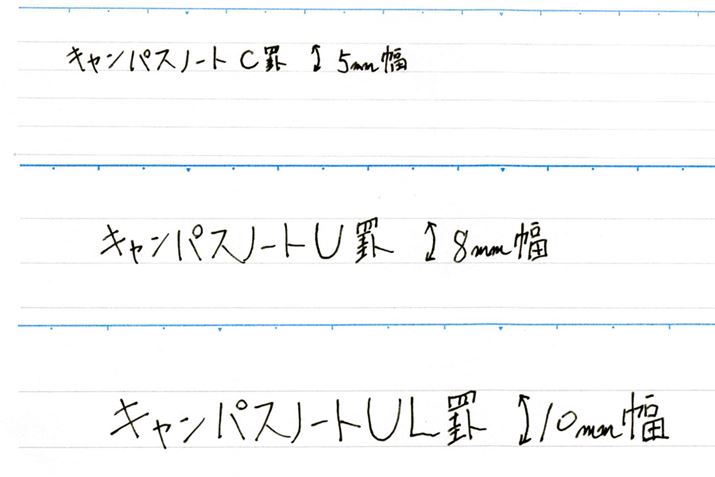 キャンパスノート C罫 ↕ 5mm幅
キャンパスノートU罫 ↕ 8mm幅
キャンパスノートUL罫 ↕ 10mm幅